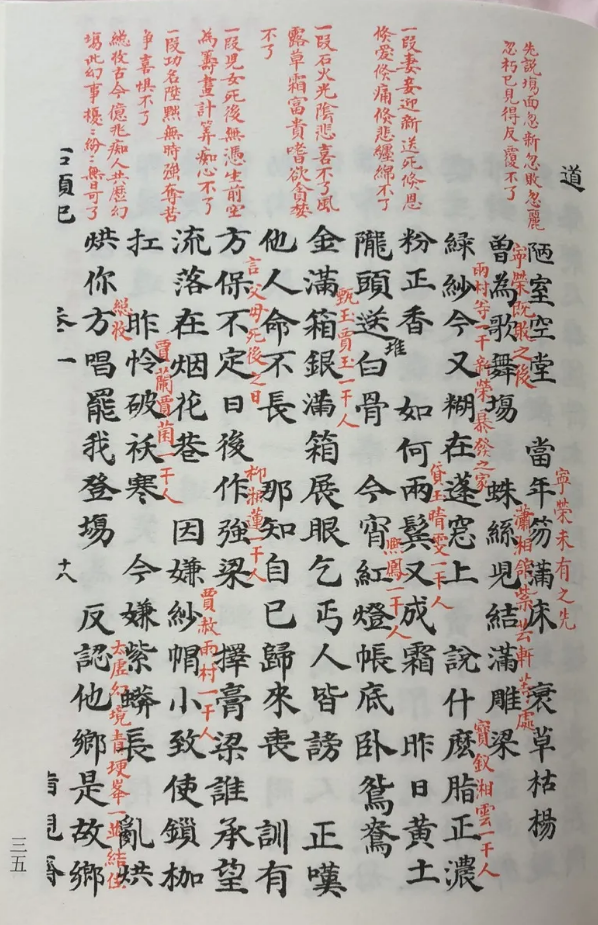 道
先說塲面忽新忽敗忽麗
忽朽已見得反覆不了
一段妻妾迎新送死倐恩
倐愛倐痛倐悲纏綿不了
一段石火光陰悲喜不了風
露草霜富貴嗜欲貪婪
不了
一段児女死後無憑生前空
為籌畫計算痴心不了
一段功名陞黜無時强奪苦
争喜惧不了
總收古今億兆痴人共歷幻
塲此幻事擾々紛々無日可了
陋室空堂 當年笏滿床 衰草枯楊
寧榮既敗之後
寧榮未有之先
曽為歌舞塲 蛛絲児結滿雕梁
瀟湘館紫芸軒等處
雨村等一干新榮暴發之家
緑紗今又糊在蓬窓上 說什麽脂正濃
寳釵湘雲一干人
粉正香 如何兩鬂又成霜 昨日黄土
堆
貸玉晴雯一干人
隴頭送白骨 今宵紅燈帳底卧鴛鴦
熙鳳一干人
甄玉賈玉一干人
金滿箱銀滿箱展眼乞丐人皆謗 正嘆
他人命不長 那知自已歸來喪 訓有
言父母死後之日
柳湘蓮一干人
方保不定日後作強梁 擇膏梁誰承望
流落在烟花巷 因嫌紗帽小致使鎖枷
賈赦雨村一干人
賈蘭賈菌一干人
扛 昨怜破袄寒 今嫌紫蟒長 亂烘
總收
太虛幻境青埂峯一並結住
烘你方唱罷我登塲 反認他鄉是故鄉
石頭記 卷一 十八 脂硯齋
三五